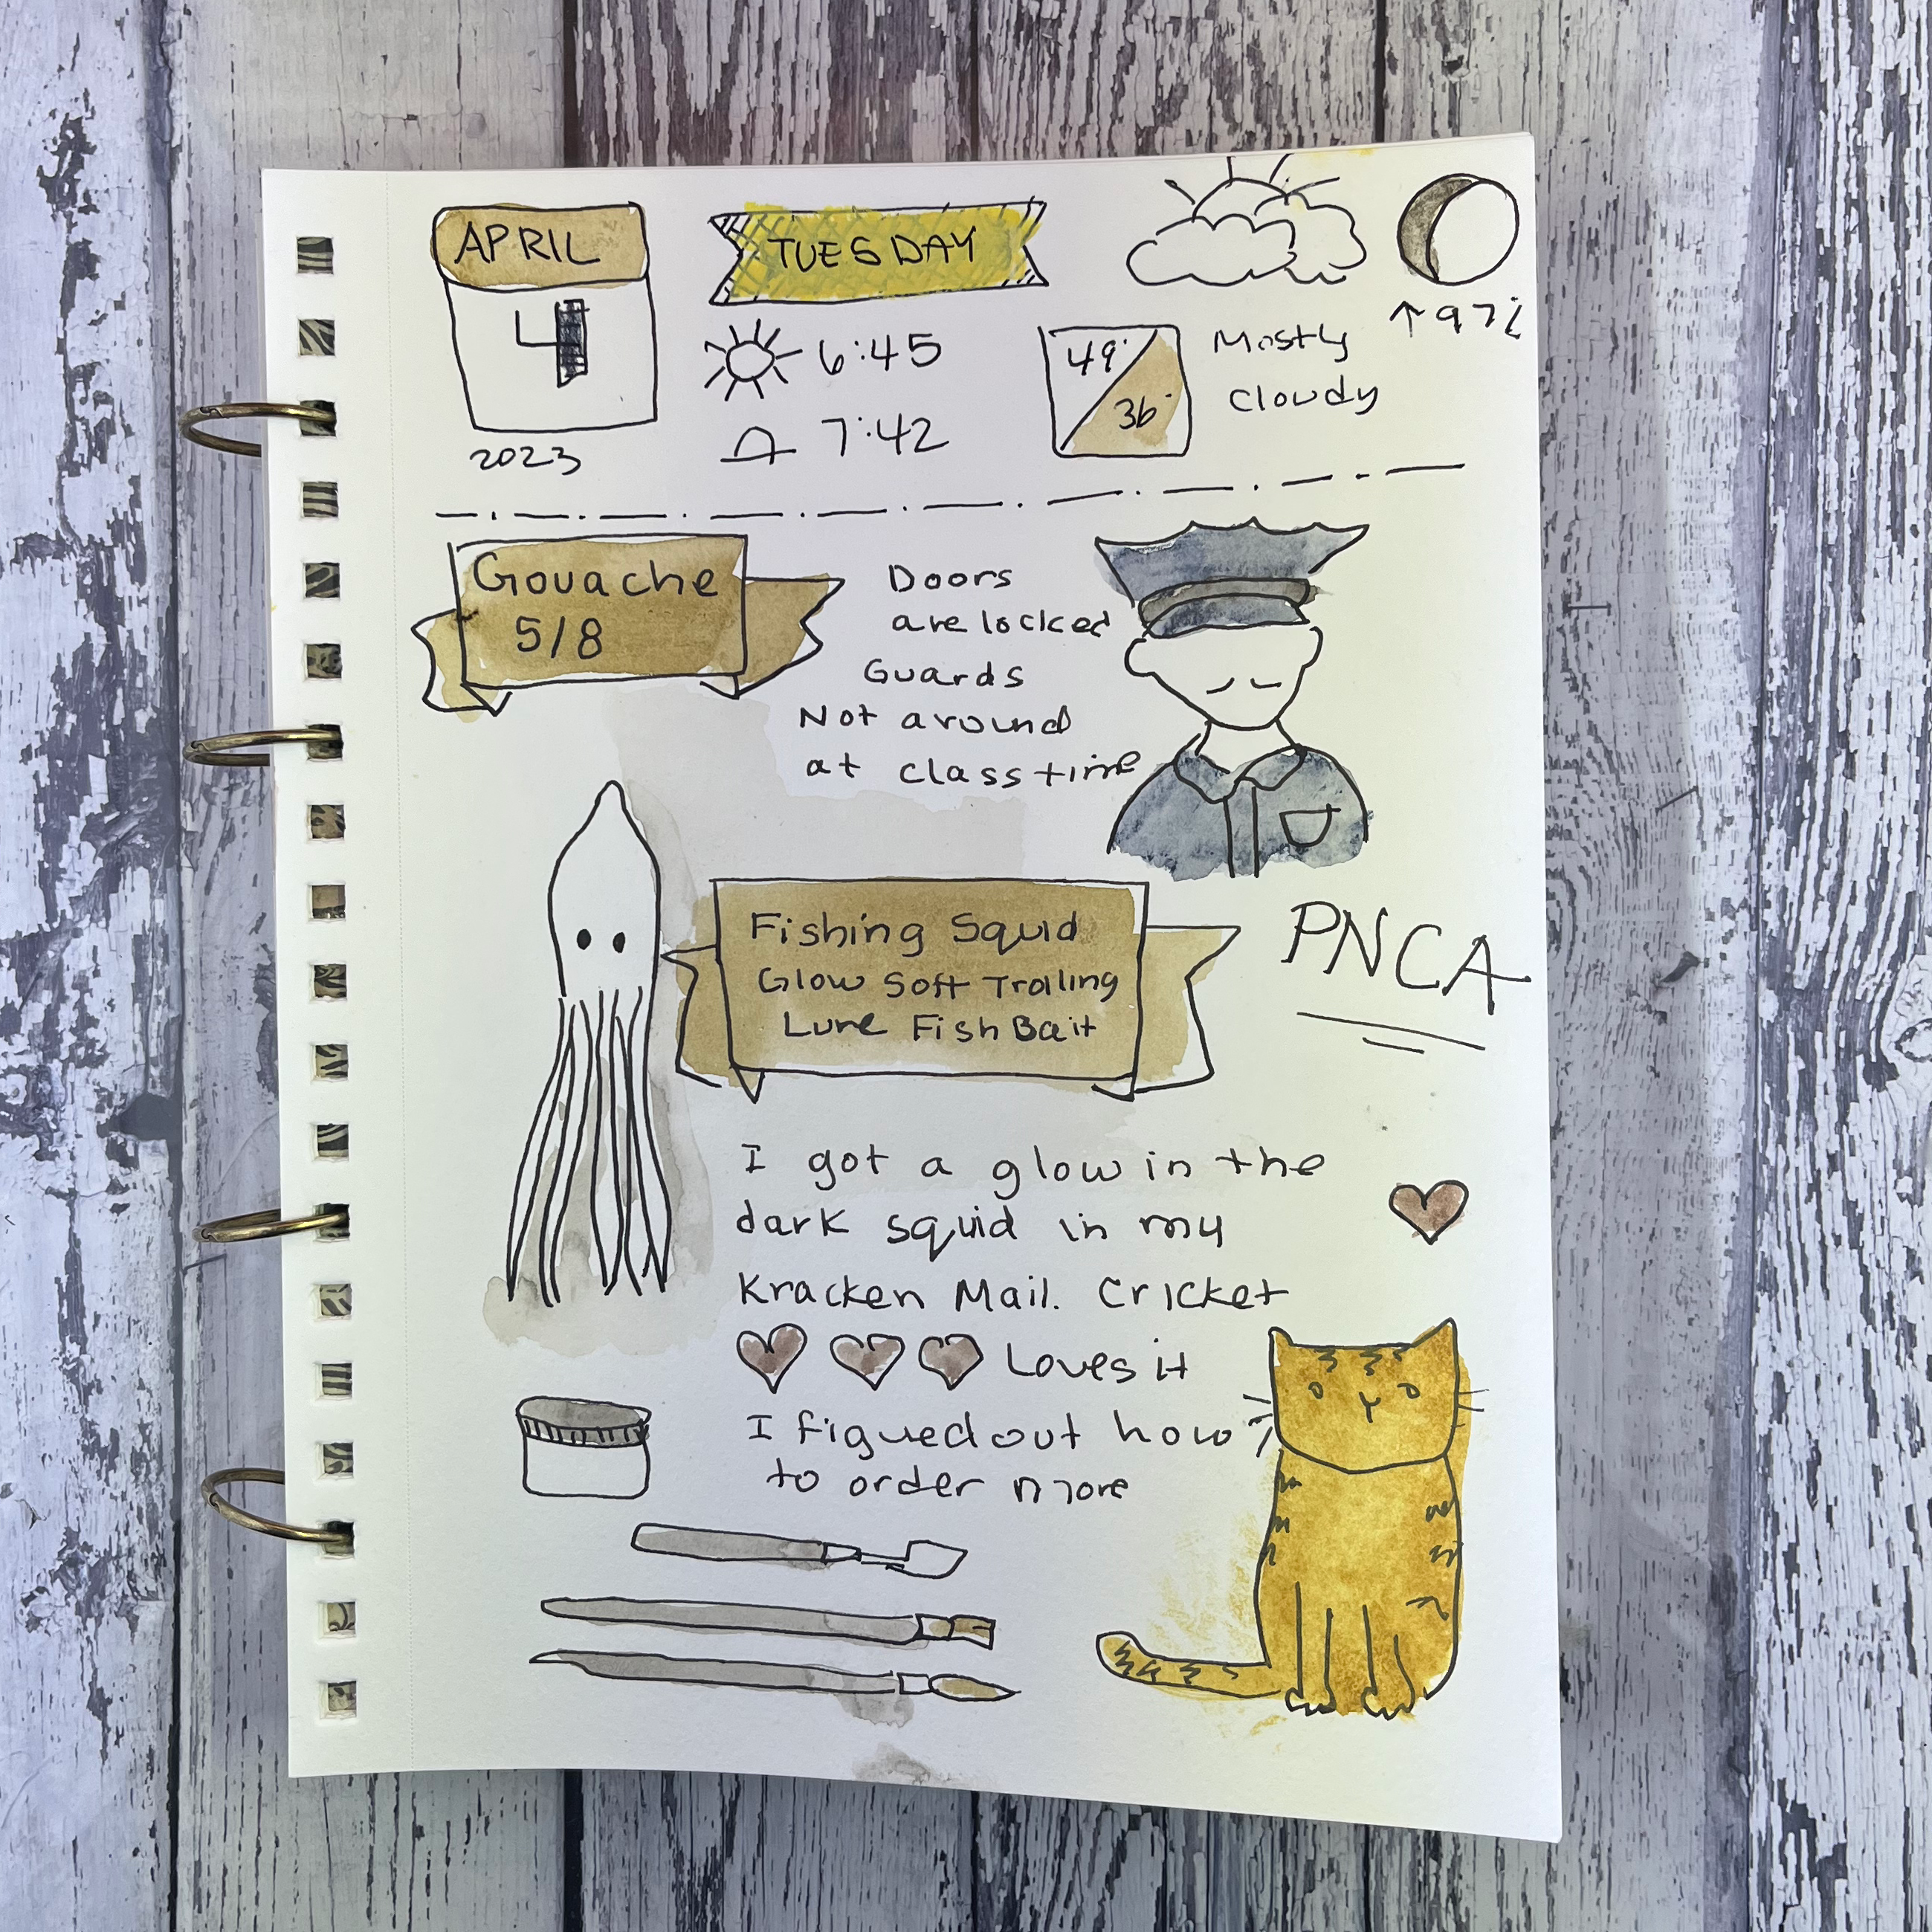 APRIL
4
2023
TUESDAY
6:45
7:42
49°
36°
Mostly
cloudy
↑97%
Gouache
5/8
Doors
are locked
Guards
Not around
at class time
Fishing Squid
Glow Soft Trolling
Lure Fish Bait
PNCA
I got a glow in the
dark squid in my
Kracken Mail. Cricket
Loves it
I figued out how
to order more